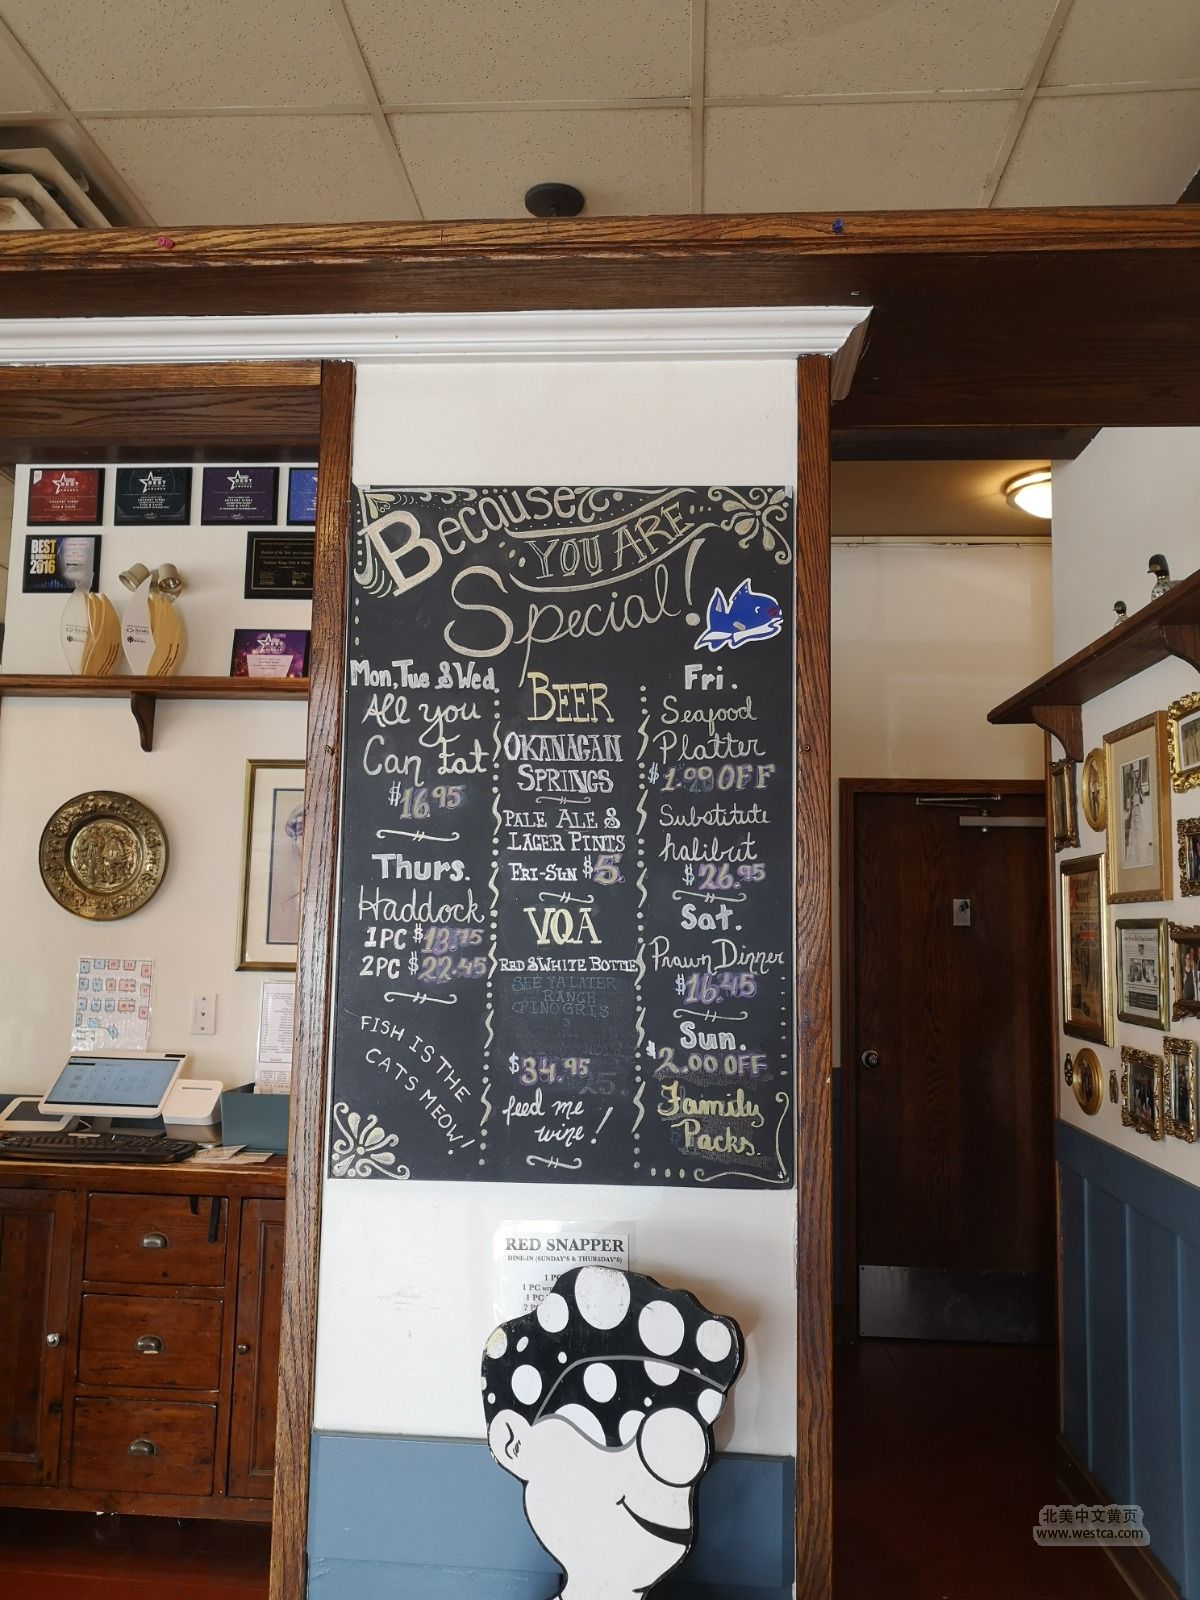 Because
YOU ARE
Special!
Mon, Tue & Wed
All you
Can Eat
$16.95
Thurs.
Haddock
1PC $13.75
2PC $22.45
FISH IS THE
CATS MEOW!
BEER
OKANAGAN
SPRINGS
PALE ALE &
LAGER PINTS
FRI-SUN $5.
VQA
RED & WHITE BOTTLE
SEE YA LATER
RANCH
PINO GRIS
$34.95
feed me
wine!
Fri.
Seafood
Platter
$1.99 OFF
Substitute
halibut
$26.95
Sat.
Prawn Dinner
$16.45
Sun.
$2.00 OFF
Family
Packs.
RED SNAPPER
DINE-IN (SUNDAY'S & THURSDAY'S)
1 PC
1 PC
2 PC
BEST
2016
BEST
BEST
BEST
北美中文黄页
www.westca.com